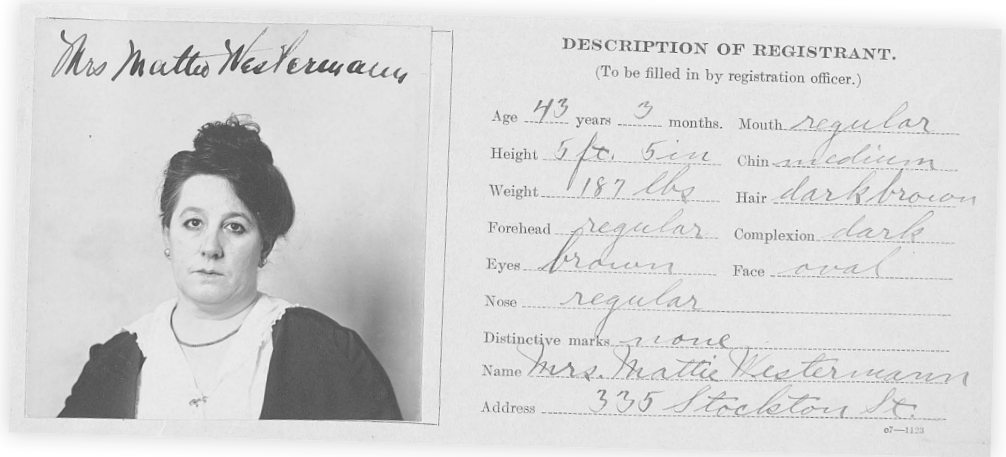 Mrs Mattie Westermann
DESCRIPTION OF REGISTRANT.
(To be filled in by registration officer.)
Age 43 years 3 months. Mouth regular
Height 5 ft. 5 in Chin medium
Weight 187 lbs Hair dark brown
Forehead regular Complexion dark
Eyes brown Face oval
Nose regular
Distinctive marks none
Name Mrs. Mattie Westermann
Address 335 Stockton St.
c7—1123